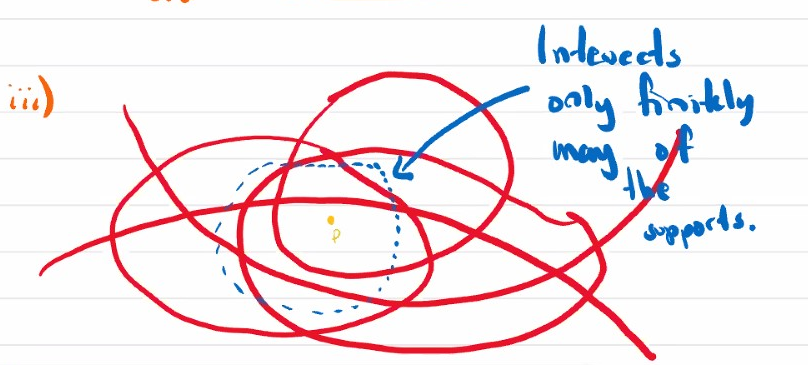 iii)
Intersects
only finitely
many of
the
supports.
p